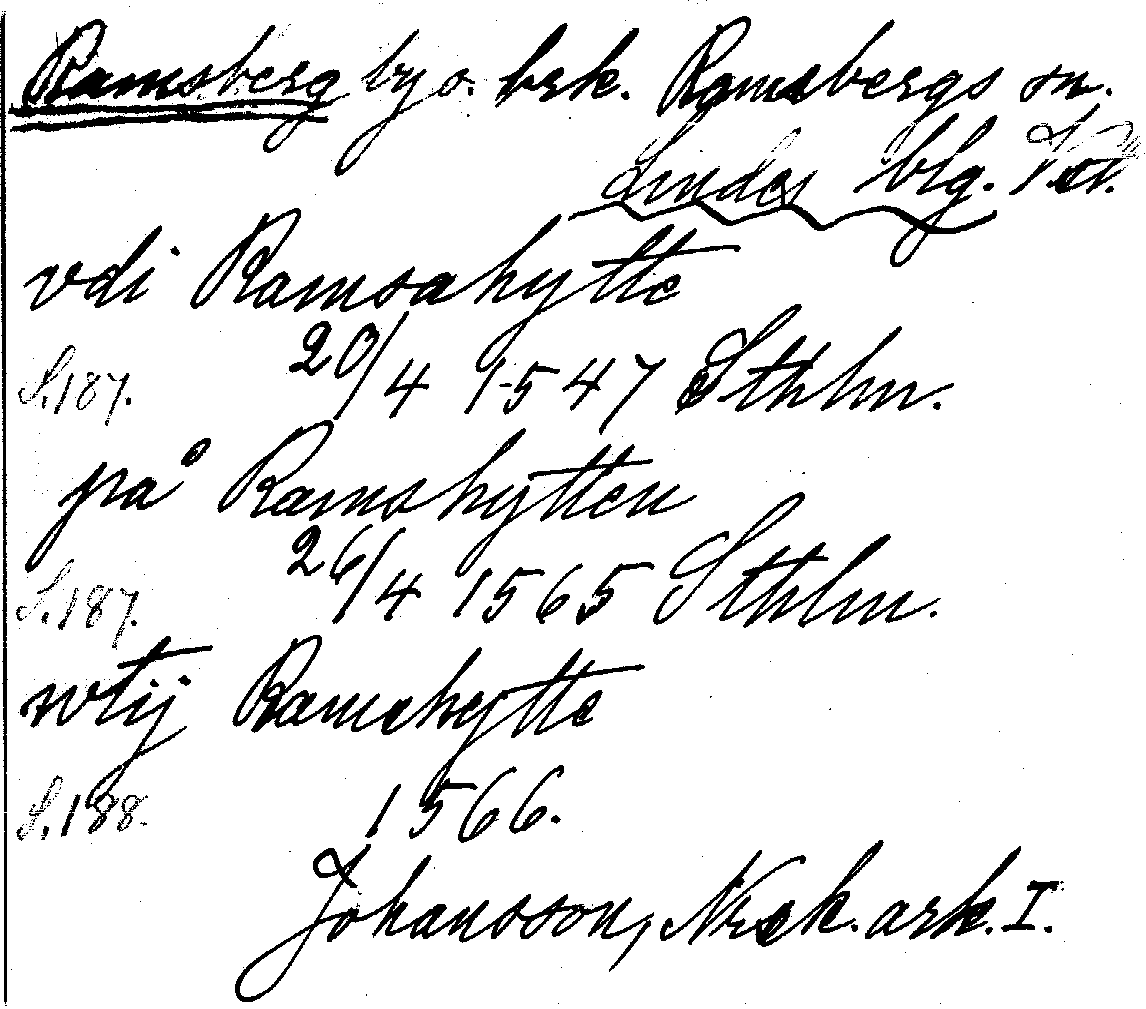 Ramsberg by o. brk. Ramsbergs sn.
Lindes blg. Vstl.
vdi Ramsahytte
S.187. 20/4 1547 Sthlm.
på Ramshytten
S.187. 26/4 1565 Sthlm.
wtij Ramshytte
S.188. 1566.
Johansson, Norsk. ark. I.